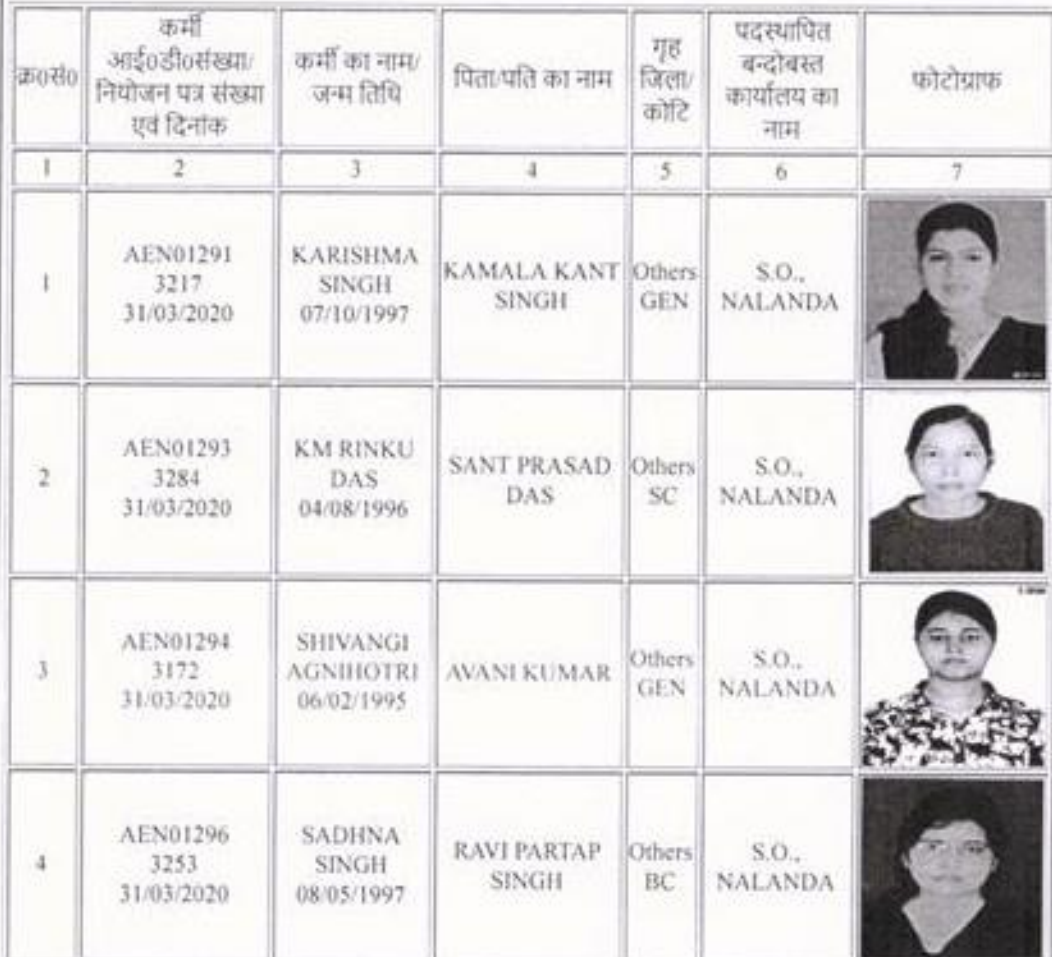 क्र0सं0
कर्मी
आई0डी0संख्या/
नियोजन पत्र संख्या
एवं दिनांक
कर्मी का नाम/
जन्म तिथि
पिता/पति का नाम
गृह
जिला/
कोटि
पदस्थापित
बन्दोबस्त
कार्यालय का
नाम
फोटोग्राफ
1
2
3
4
5
6
7
1
AEN01291
3217
31/03/2020
KARISHMA
SINGH
07/10/1997
KAMALA KANT
SINGH
Others
GEN
S.O.,
NALANDA
2
AEN01293
3284
31/03/2020
KM RINKU
DAS
04/08/1996
SANT PRASAD
DAS
Others
SC
S.O.,
NALANDA
3
AEN01294
3172
31/03/2020
SHIVANGI
AGNIHOTRI
06/02/1995
AVANI KUMAR
Others
GEN
S.O.,
NALANDA
4
AEN01296
3253
31/03/2020
SADHNA
SINGH
08/05/1997
RAVI PARTAP
SINGH
Others
BC
S.O.,
NALANDA